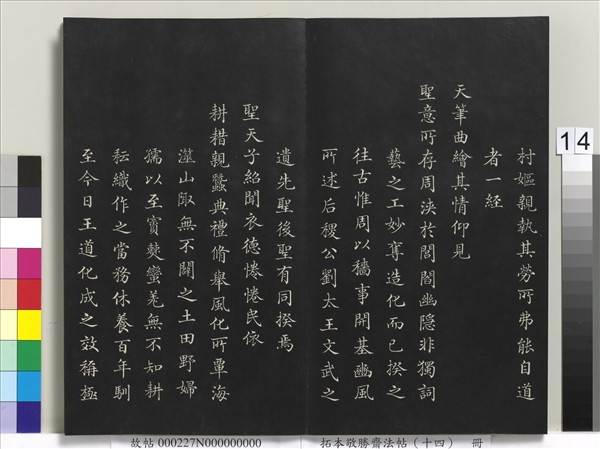 村嫗親執其勞所弗能自道
者一經
天筆曲繪其情仰見
聖意所存周浹於閭閻幽隱非獨詞
藝之工妙奪造化而已揆之
往古惟周以穡事開基豳風
所述后稷公劉太王文武之
遺先聖後聖有同揆焉
聖天子紹聞衣德惓惓民依
耕耤親蠶典禮脩舉風化所覃海
澨山陬無不闢之土田野婦
孺以至賨僰蠻羌無不知耕
耘織作之當務休養百年馴
至今日王道化成之效稱極
14
故帖 000227N000000000
拓本敬勝齋法帖（十四） 冊